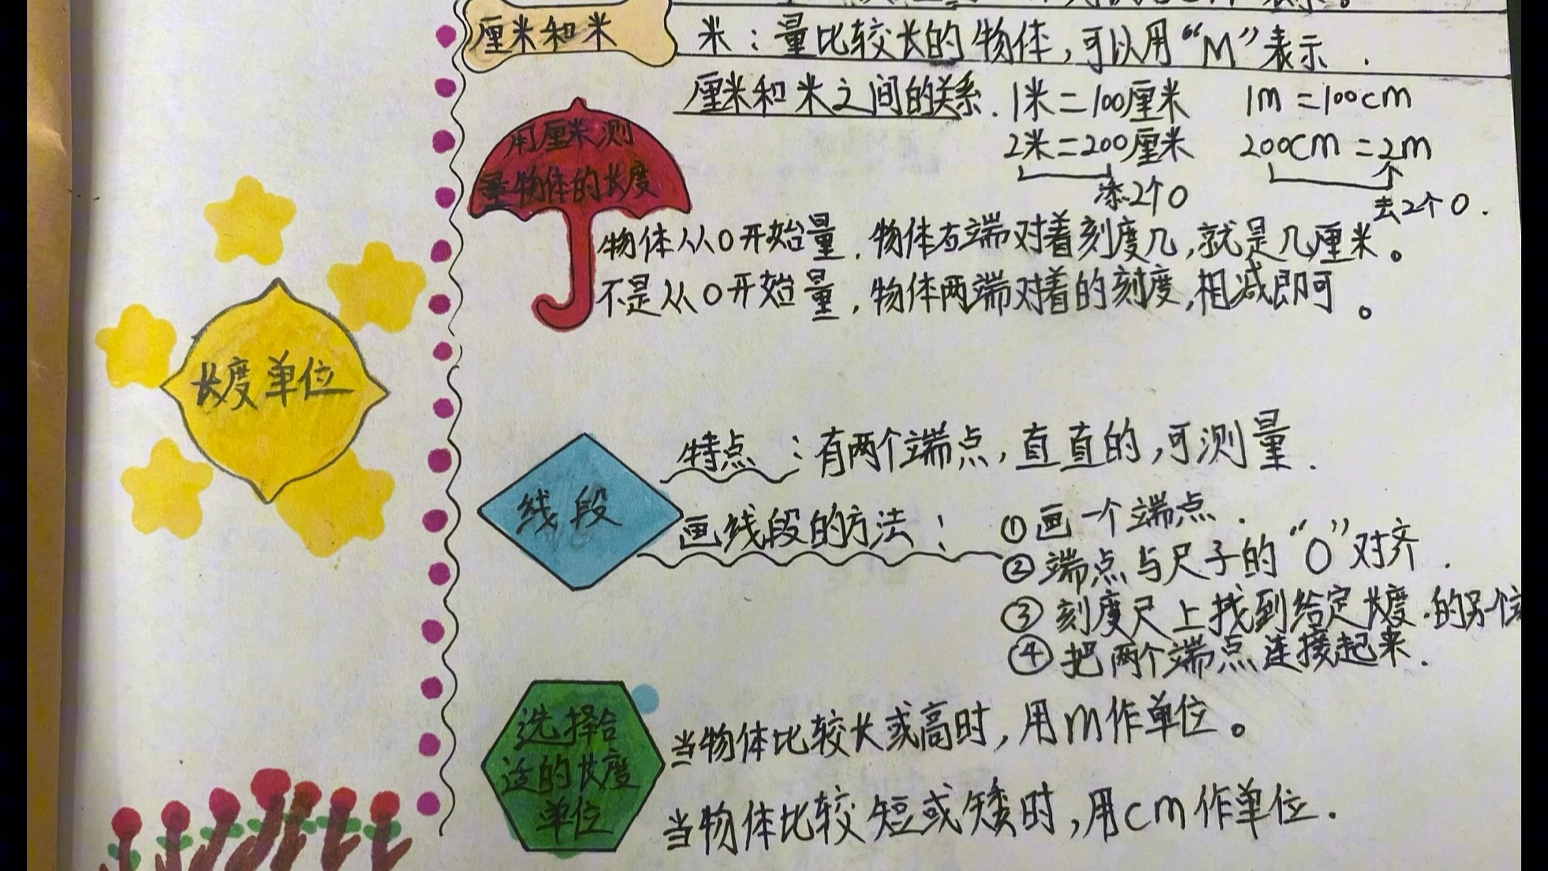 厘米和米
米：量比较长的物体，可以用“M”表示．
厘米和米之间的关系．1米=100厘米 1m=100cm
2米=200厘米 200cm=2m
添2个0 去2个0．
用厘米测
量物体的长度
物体从0开始量，物体右端对着刻度几，就是几厘米。
不是从0开始量，物体两端对着的刻度，相减即可。
长度单位
线段
特点：有两个端点，直直的，可测量．
画线段的方法：①画一个端点．
②端点与尺子的“0”对齐．
③刻度尺上找到给定长度．的另个
④把两个端点连接起来．
选择合
适的长度
单位
当物体比较长或高时，用m作单位。
当物体比较短或矮时，用cm作单位．